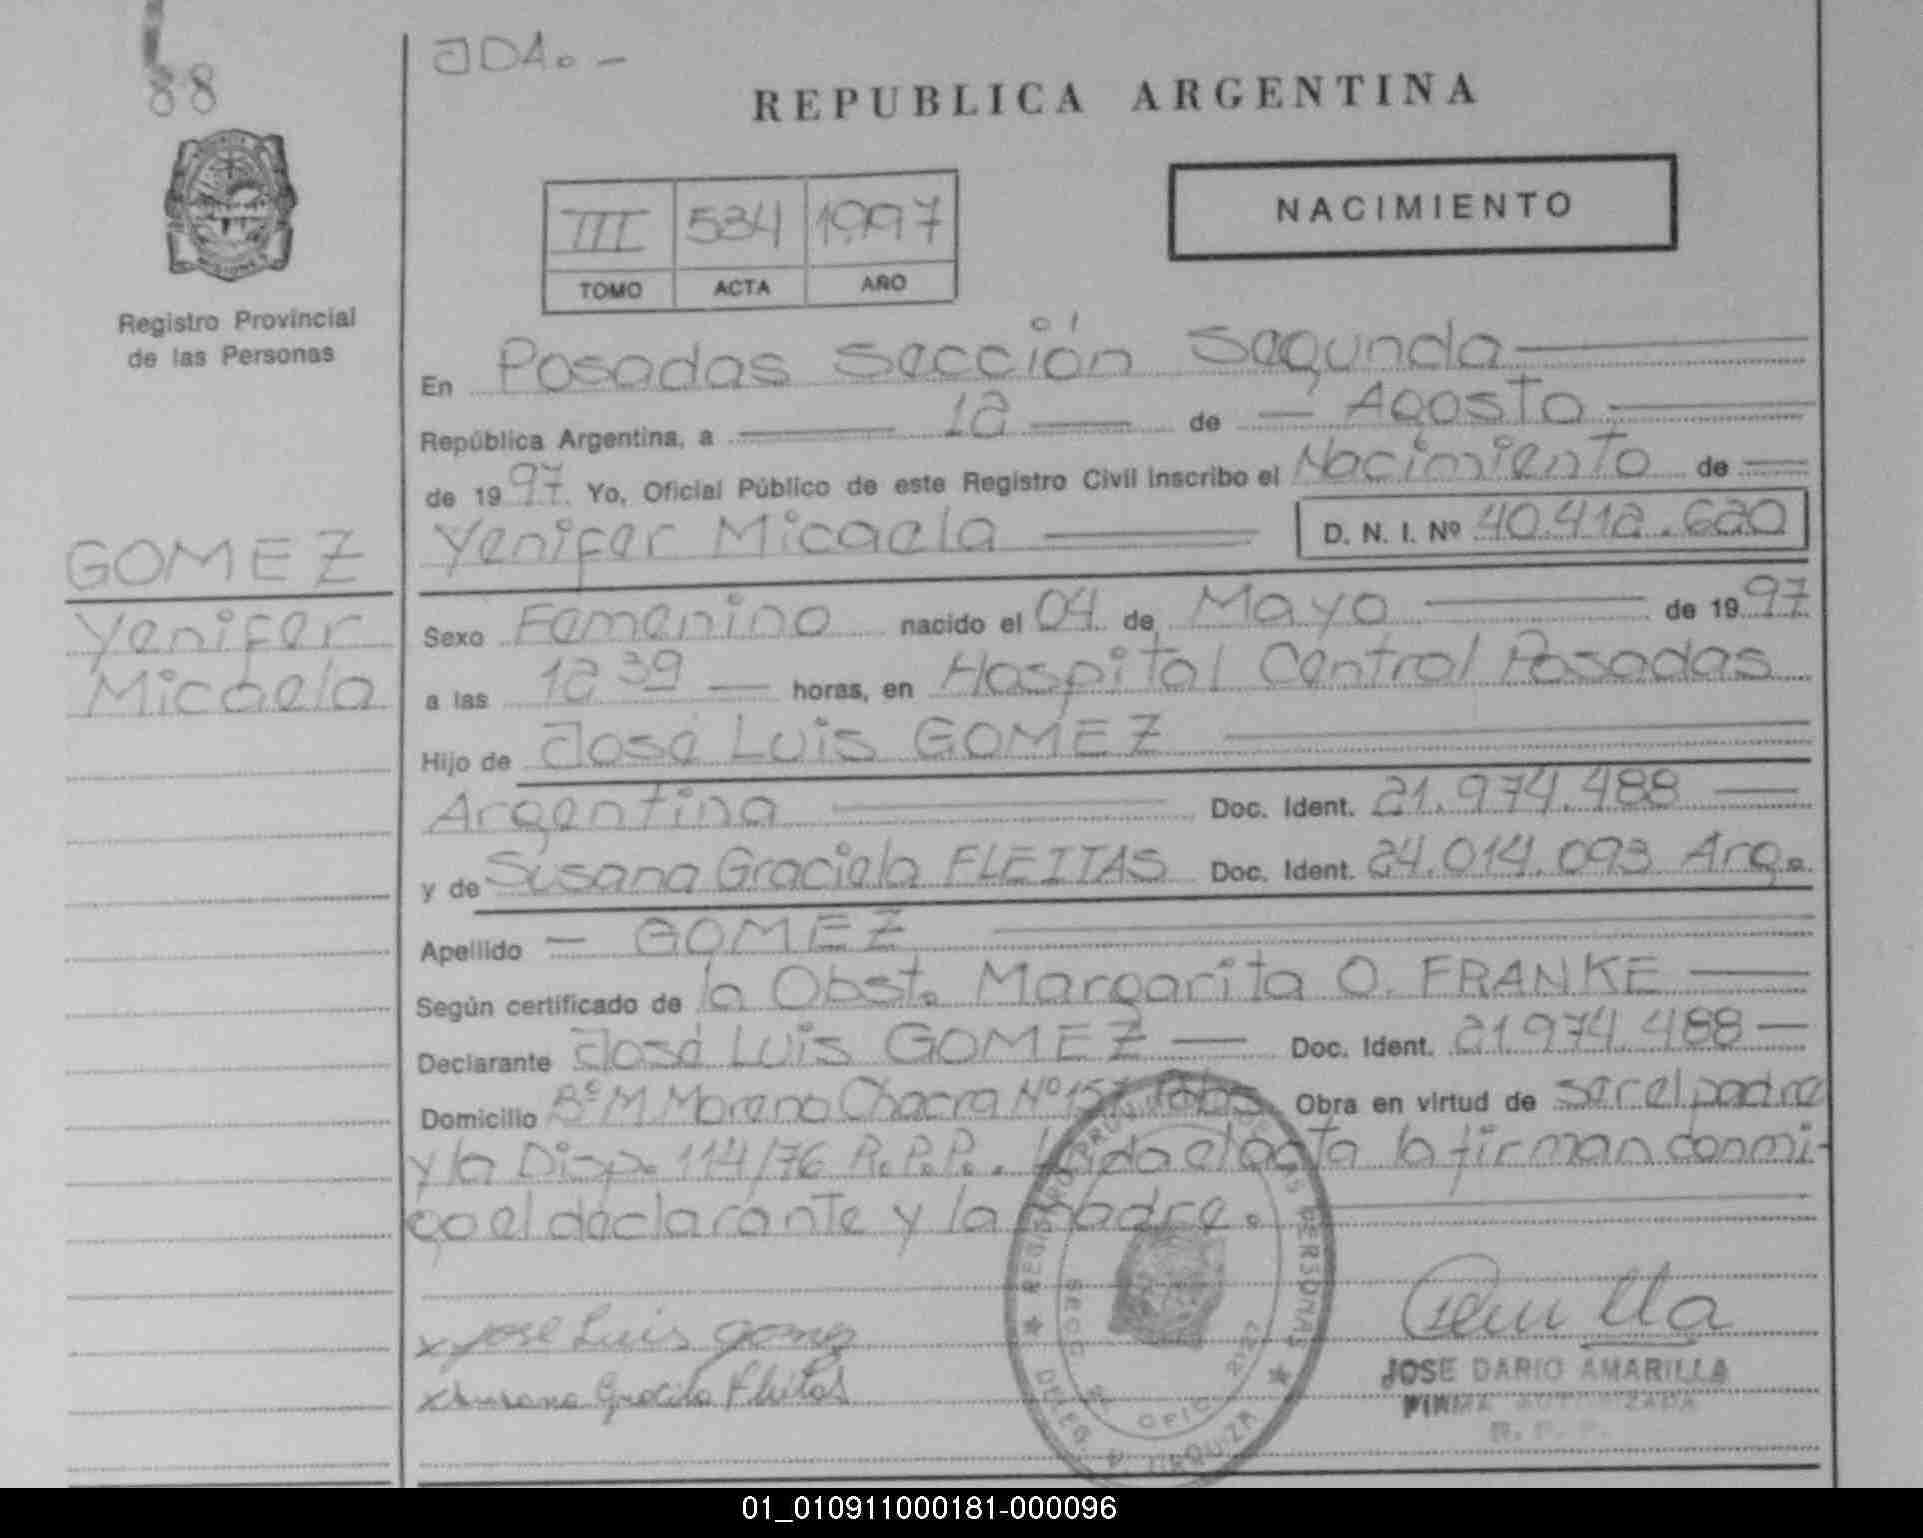 88
JDA. -
REPUBLICA ARGENTINA
NACIMIENTO
III 534 1997
TOMO ACTA AÑO
Registro Provincial
de las Personas
En Posadas Sección Segunda
República Argentina, a 12 de Agosto
de 1997. Yo, Oficial Público de este Registro Civil inscribo el Nacimiento de
Yenifer Micaela D. N. I. Nº 40.412.620
GOMEZ
Yenifer
Micaela
Sexo Femenino nacido el 04 de Mayo de 1997
a las 12 39 horas, en Hospital Central Posadas
Hijo de José Luis GOMEZ
Argentina Doc. Ident. 21.974.488
y de Susana Graciela FLEITAS Doc. Ident. 24.014.093 Arg.
Apellido GOMEZ
Según certificado de la Obst. Margarita O. FRANKE
Declarante José Luis GOMEZ Doc. Ident. 21.974.488
Domicilio Bº M. Moreno Chacra Nº 157 Obra en virtud de ser el padre
y la Disp. 114/76 R.P.P. Leida el acta la firman conmi-
go el declarante y la madre.
x Jose Luis gomez
x Susana Graciela Fleitas
JOSE DARIO AMARILLA
FIRMA AUTORIZADA
R. P. P.
01_010911000181-000096